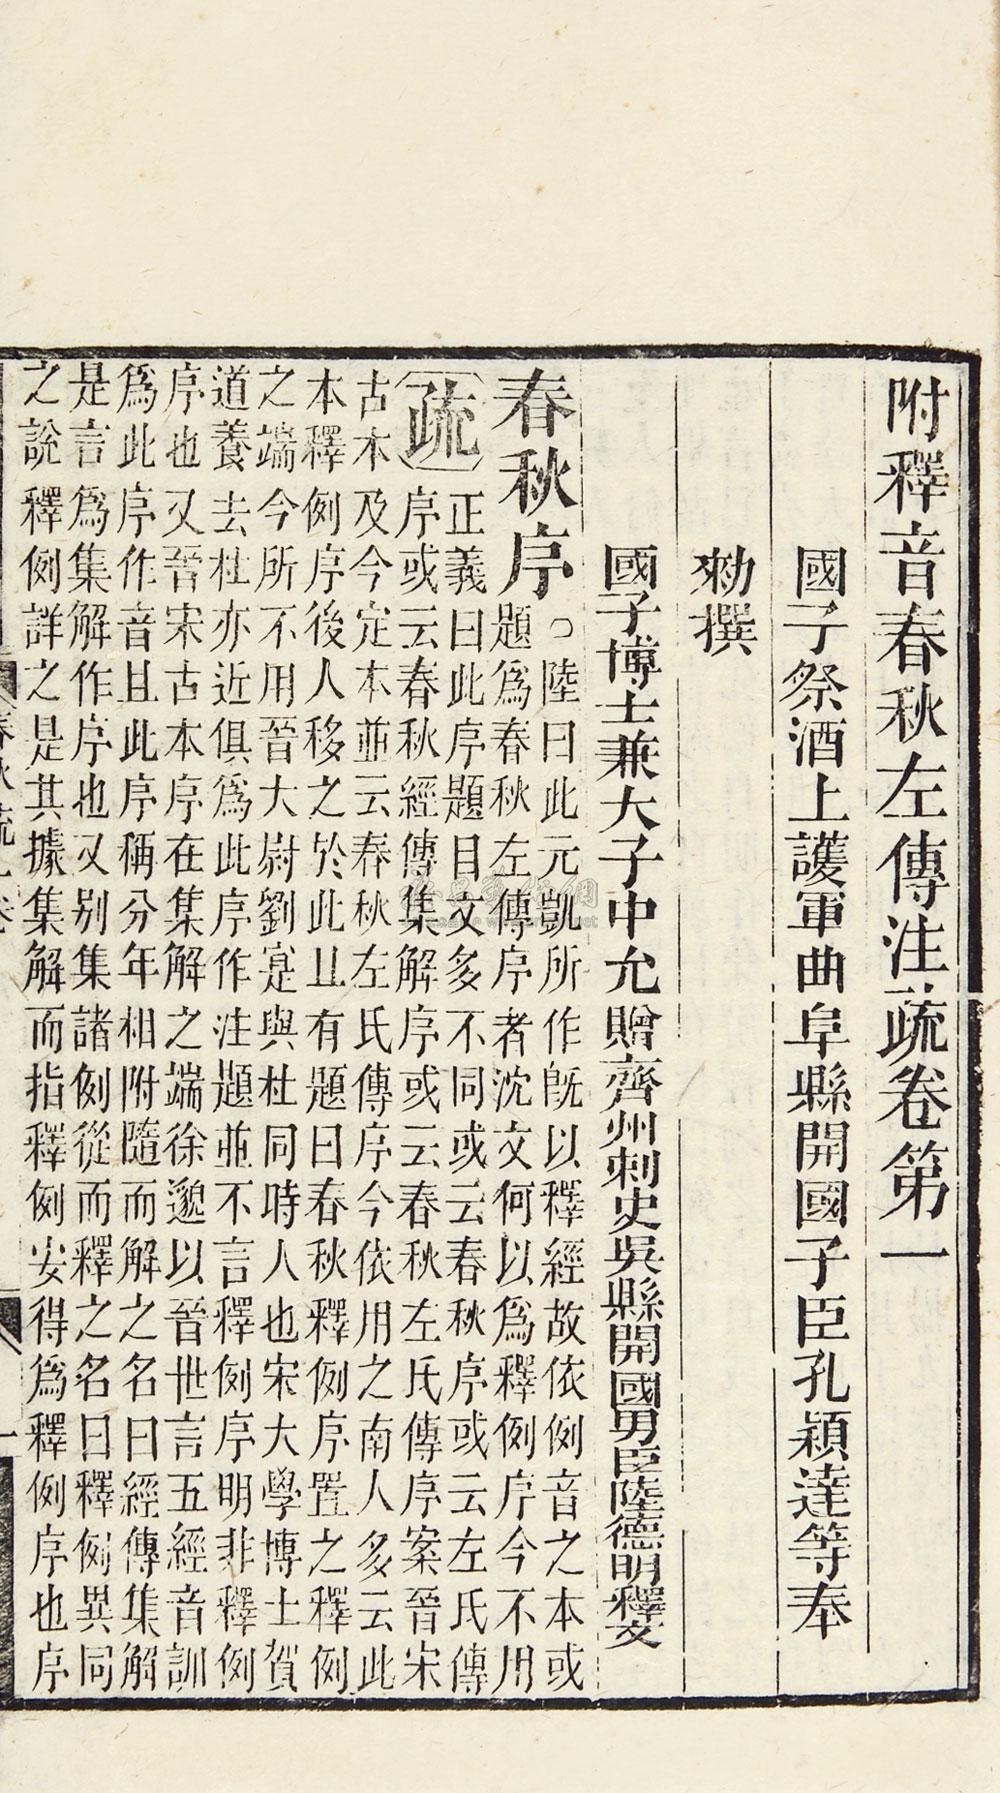 附釋音春秋左傳注疏卷第一
國子祭酒上護軍曲阜縣開國子臣孔穎達等奉
勑撰
國子博士兼太子中允贈齊州刺史吳縣開國男臣陸德明釋文
春秋序
○陸曰此元凱所作旣以釋經故依例音之本或
題爲春秋左傳序者沈文何以爲釋例序今不用
疏
正義曰此序題目文多不同或云春秋序或云左氏傳
序或云春秋經傳集解序或云春秋左氏傳序案晉宋
古本及今定本並云春秋左氏傳序今依用之南人多云此
本釋例序後人移之於此且有題曰春秋釋例序置之釋例
之端今所不用晉大尉劉寔與杜同時人也宋大學博士賀
道養去杜亦近俱爲此序作注題並不言釋例序明非釋例
序也又晉宋古本序在集解之端徐邈以晉世言五經音訓
爲此序作音且此序稱分年相附隨而解之名曰經傳集解
是言爲集解作序也又别集諸例從而釋之名曰釋例異同
之說釋例詳之是其據集解而指釋例安得爲釋例序也序